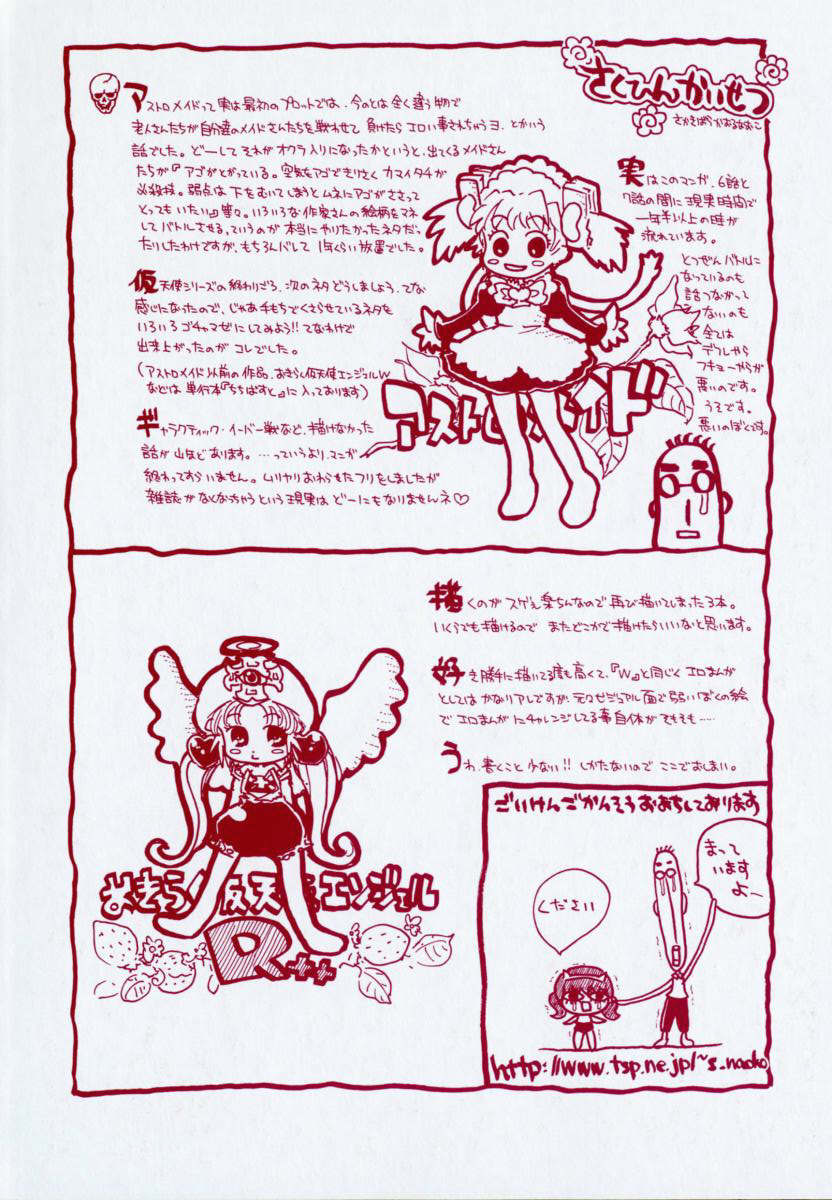 さくひんかいせつ
アストロメイドって実は最初のプロットでは、今のとは全く違う物で
老人さんたちが自分達のメイドさんたちを戦わせて負けたらエロい事されちゃうヨ、とかいう
話でした。どーしてそれがオクラ入りになったかというと、出てくるメイドさん
たちが『アゴがとがっている。空気をアゴできりさくカマイタチが
必殺技。弱点は下をむいてしまうとムネにアゴがささって
とってもいたい』等々。いろいろな作家さんの絵柄をマネ
してバトルさせる、ていうのが本当にやりたかったネタだっ
たりしたわけですが、もちろんバレして1年くらい放置でした。
仮天使シリーズの終わりごろ、次のネタどうしましょう、てな
感じになったので、じゃあ手もちでくさらせているネタを
いろいろゴチャマゼにしてみよう!!てなわけで
出来上がったのがコレでした。
(アストロメイド以前の作品、あきらし仮天使エンジェルW
などは単行本『ちちばすと』に入っております)
ギャラクティック・イーバー戦など、描けなかった
話が山ほどあります。…っていうよりマンガ
終わってすらいません。ムリヤリおわらせたフリをしましたが
雑誌がなくなっちゃうという現実はどーにもなりませんネ♡
実はこのマンガ、6話と
7話の間に現実時間で
一年半以上の時が
流れています。
とつぜんバトルに
なっているのも
話つながって
ないのも
全ては
デフレやら
フキョーやらが
悪いのです。
うそです。
悪いのぼくです。
アストロメイド
描くのがスゲぇ楽ちんなので再び描いてしまった3本。
いくらでも描けるのでまたどこかで描けたらいいなと思います。
好き勝手に描いてる度も高くて、『W』と同じくエロまんが
としてはかなりアレですが、元々ビジュアル面で弱いぼくの絵
でエロまんがにチャレンジしてる事自体がそもそも……
うわ、書くこと少ない!!しかたないのでここでおしまい。
エンジェル
R++
ごいけんごかんそうおまちしております
まって
います
よー
ください
http://www.tsp.ne.jp/~s_naoko